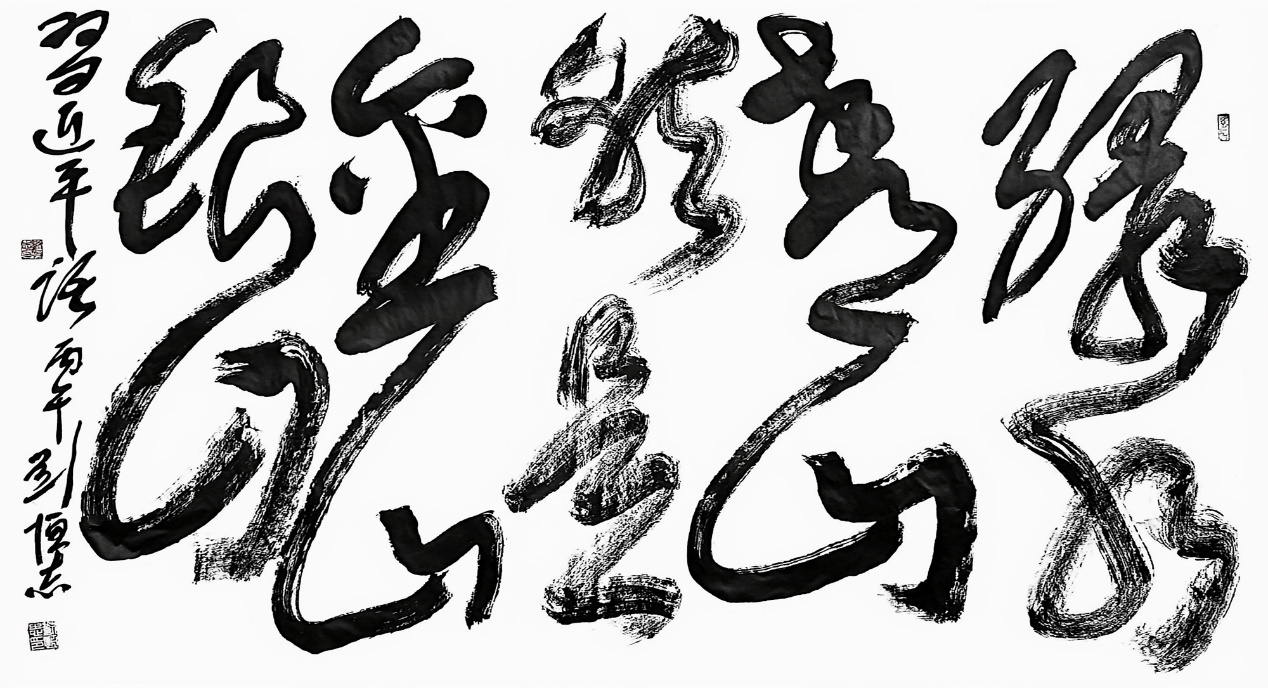 绿水
青山
就是
金山
银山
習近平语 丙午 刘恒志